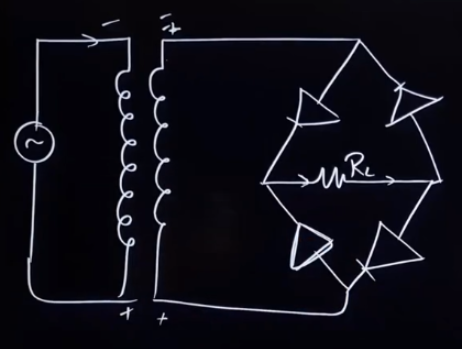 - -
+
~
R_L
+ +